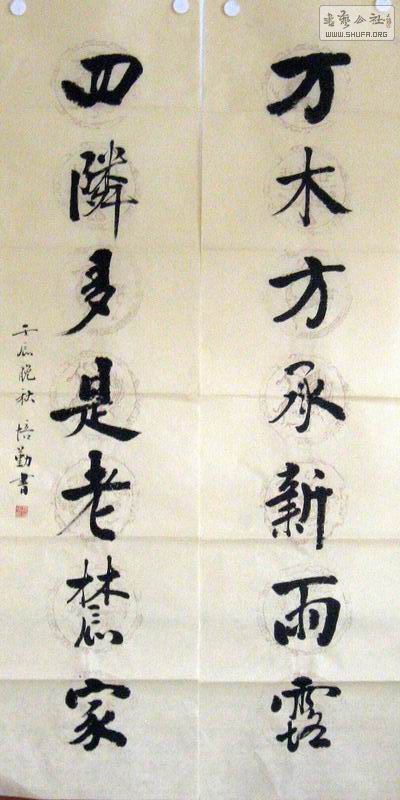 万木方承新雨露
四隣多是老農家
壬辰晚秋 培勤書
書藝公社
WWW.SHUFA.ORG